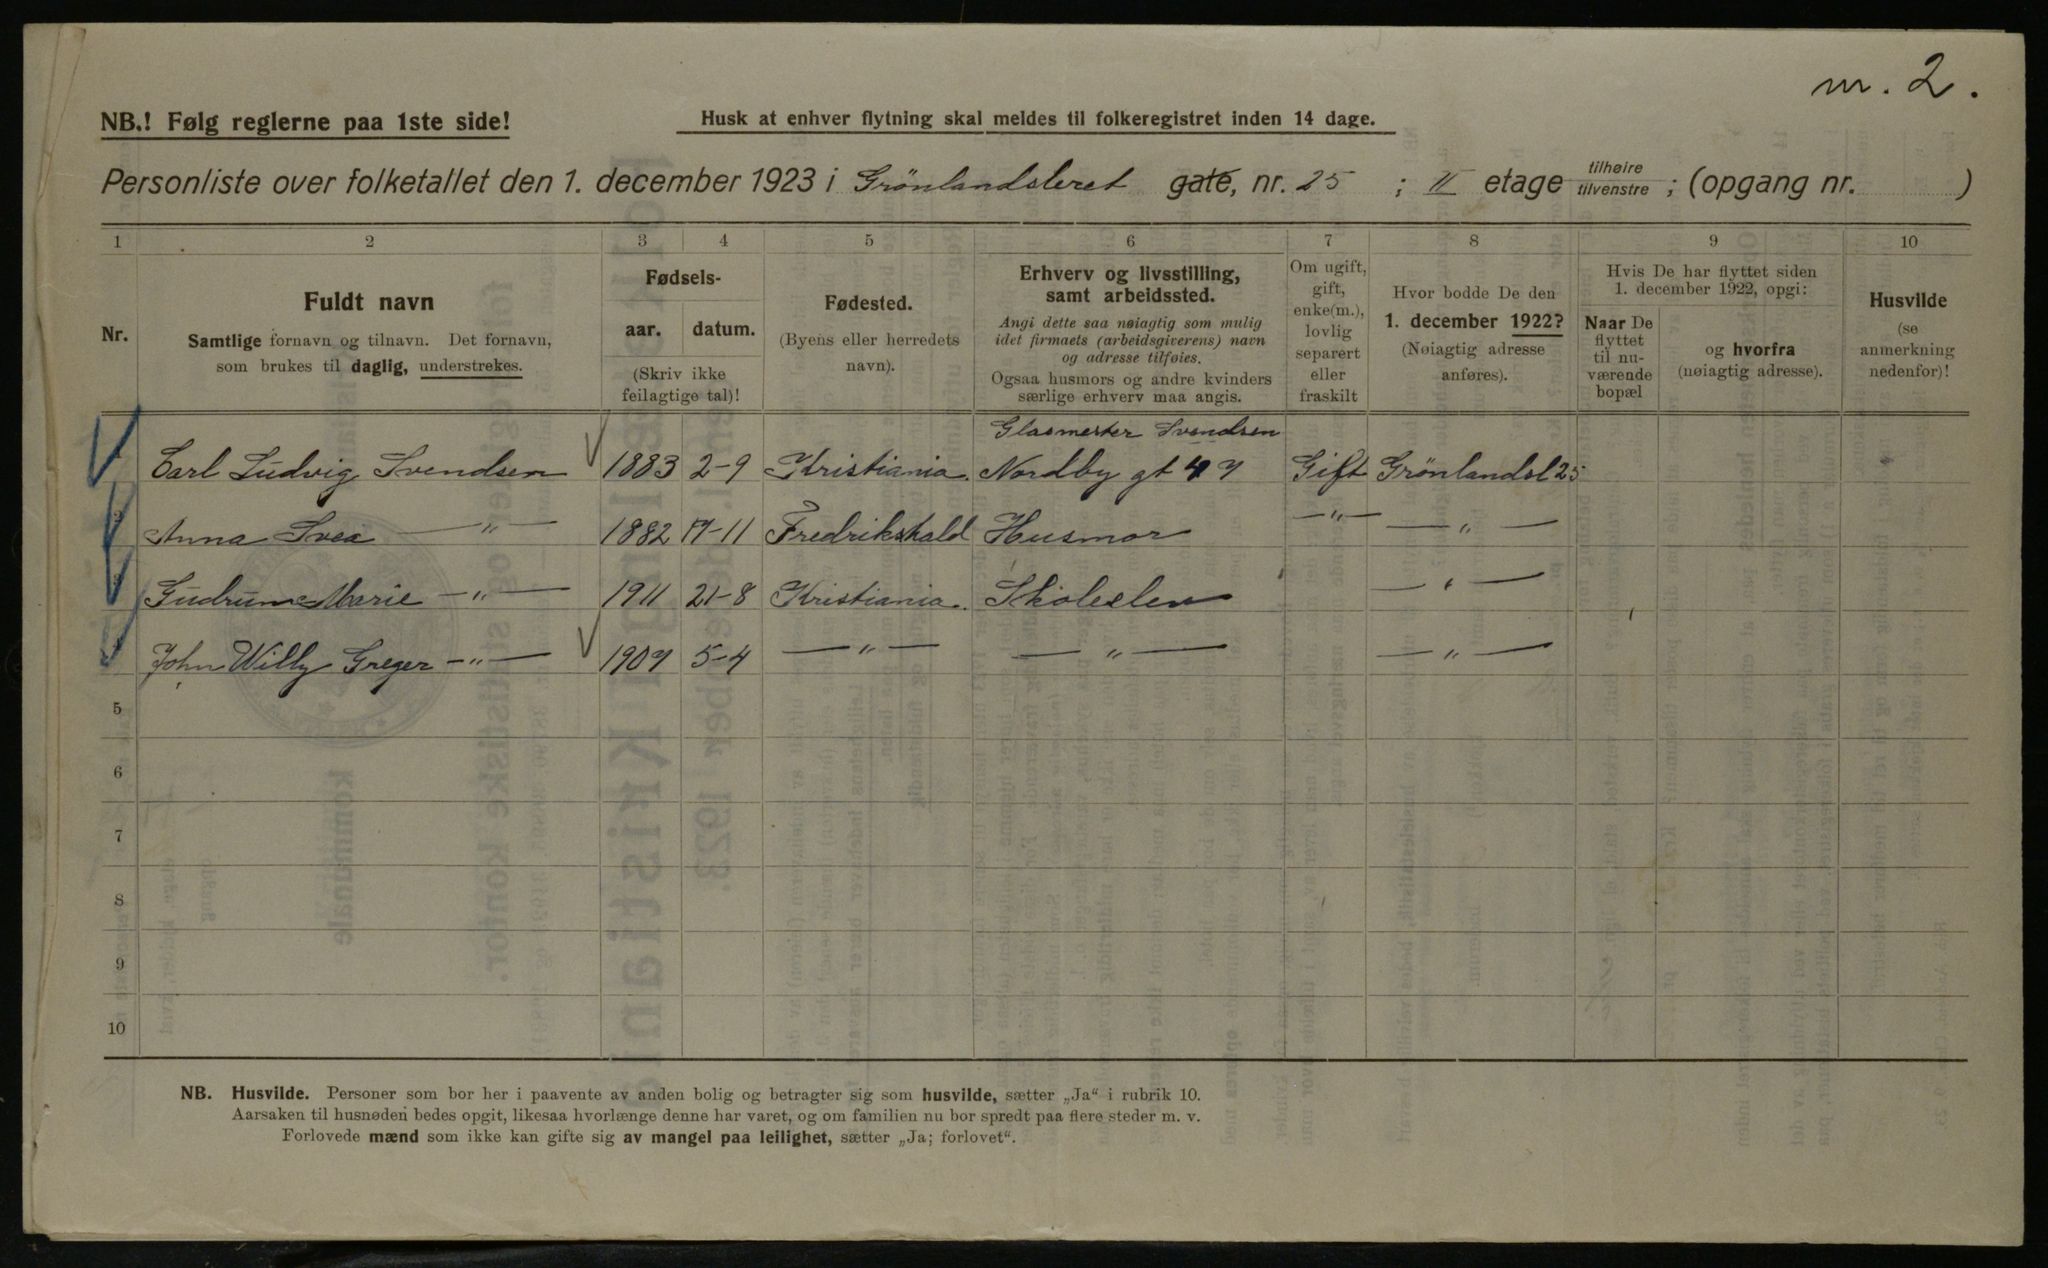 nr. 2.
NB.! Følg reglerne paa 1ste side!
Husk at enhver flytning skal meldes til folkeregistret inden 14 dage.
Personliste over folketallet den 1. december 1923 i Grönlandsleret gate, nr. 25 ; II etage tilhøire tilvenstre ; (opgang nr. )
1 2 3 4 5 6 7 8 9 10
Nr.
Fuldt navn
Samtlige fornavn og tilnavn. Det fornavn,
som brukes til daglig, understrekes.
Fødsels-
aar. datum.
(Skriv ikke
feilagtige tal)!
Fødested.
(Byens eller herredets
navn).
Erhverv og livsstilling,
samt arbeidssted.
Angi dette saa nøiagtig som mulig
idet firmaets (arbeidsgiverens) navn
og adresse tilføies.
Ogsaa husmors og andre kvinders
særlige erhverv maa angis.
Om ugift,
gift,
enke(m.),
lovlig
separert
eller
fraskilt
Hvor bodde De den
1. december 1922?
(Nøiagtig adresse
anføres).
Hvis De har flyttet siden
1. december 1922, opgi:
Naar De
flyttet
til nu-
værende
bopæl
og hvorfra
(nøiagtig adresse).
Husvilde
(se
anmerkning
nedenfor)!
Glasmester Svendsen
Carl Ludvig Svendsen 1883 2-9 Kristiania. Nordby gt 47 Gift Grönlandsl 25
2 Anna Svea —"— 1882 17-11 Fredrikshald Husmor —"— —"—
3 Gudrun Marie —"— 1911 21-8 Kristiania. Skoleelev —"—
4 John Willy Greger —"— 1907 5-4 —"— —"— —"—
5
6
7
8
9
10
NB. Husvilde. Personer som bor her i paavente av anden bolig og betragter sig som husvilde, sætter „Ja“ i rubrik 10.
Aarsaken til husnøden bedes opgit, likesaa hvorlænge denne har varet, og om familien nu bor spredt paa flere steder m. v.
Forlovede mænd som ikke kan gifte sig av mangel paa leilighet, sætter „Ja; forlovet“.